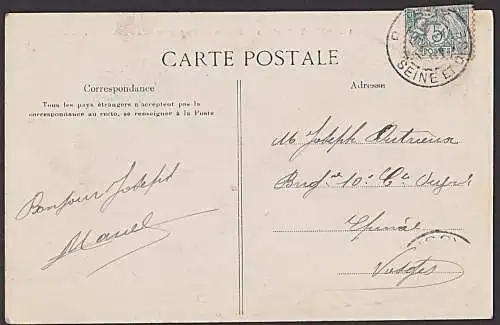 CARTE POSTALE
Correspondance
Tous les pays étrangers n'acceptent pas la
correspondance au recto, se renseigner à la Poste
Adresse
5
POSTES
SEINE ET
Bonjour Joseph
Marcel
M Joseph
10e Cie
Epinal
Vosges